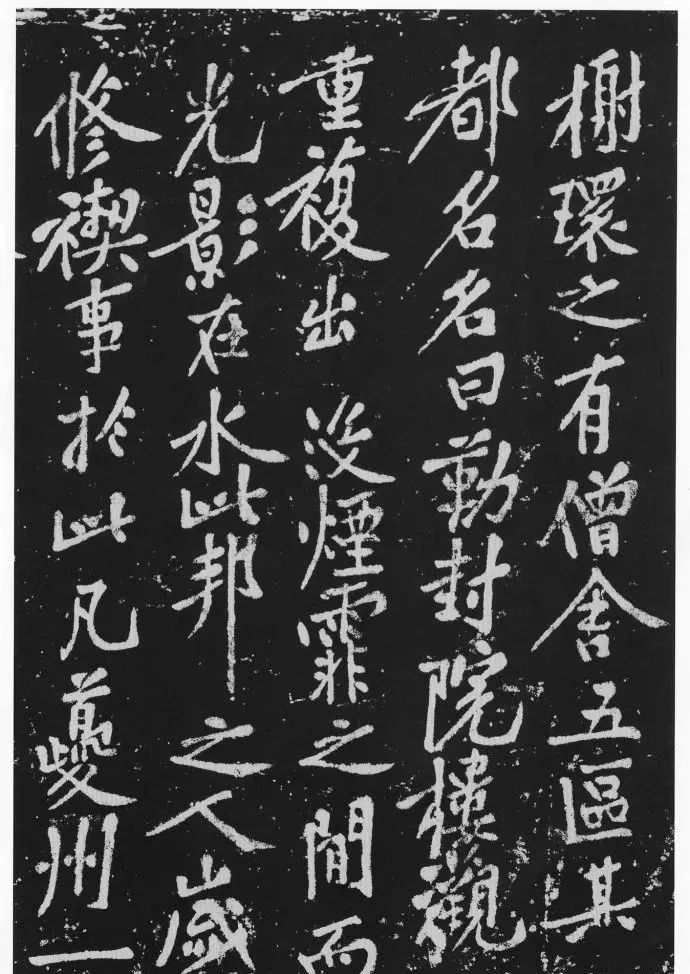 榭環之有僧舍五區其
都名名曰勤封院樓觀
重複出没煙霏之間而
光影在水此邦之人歲
修禊事於此凡夔州一